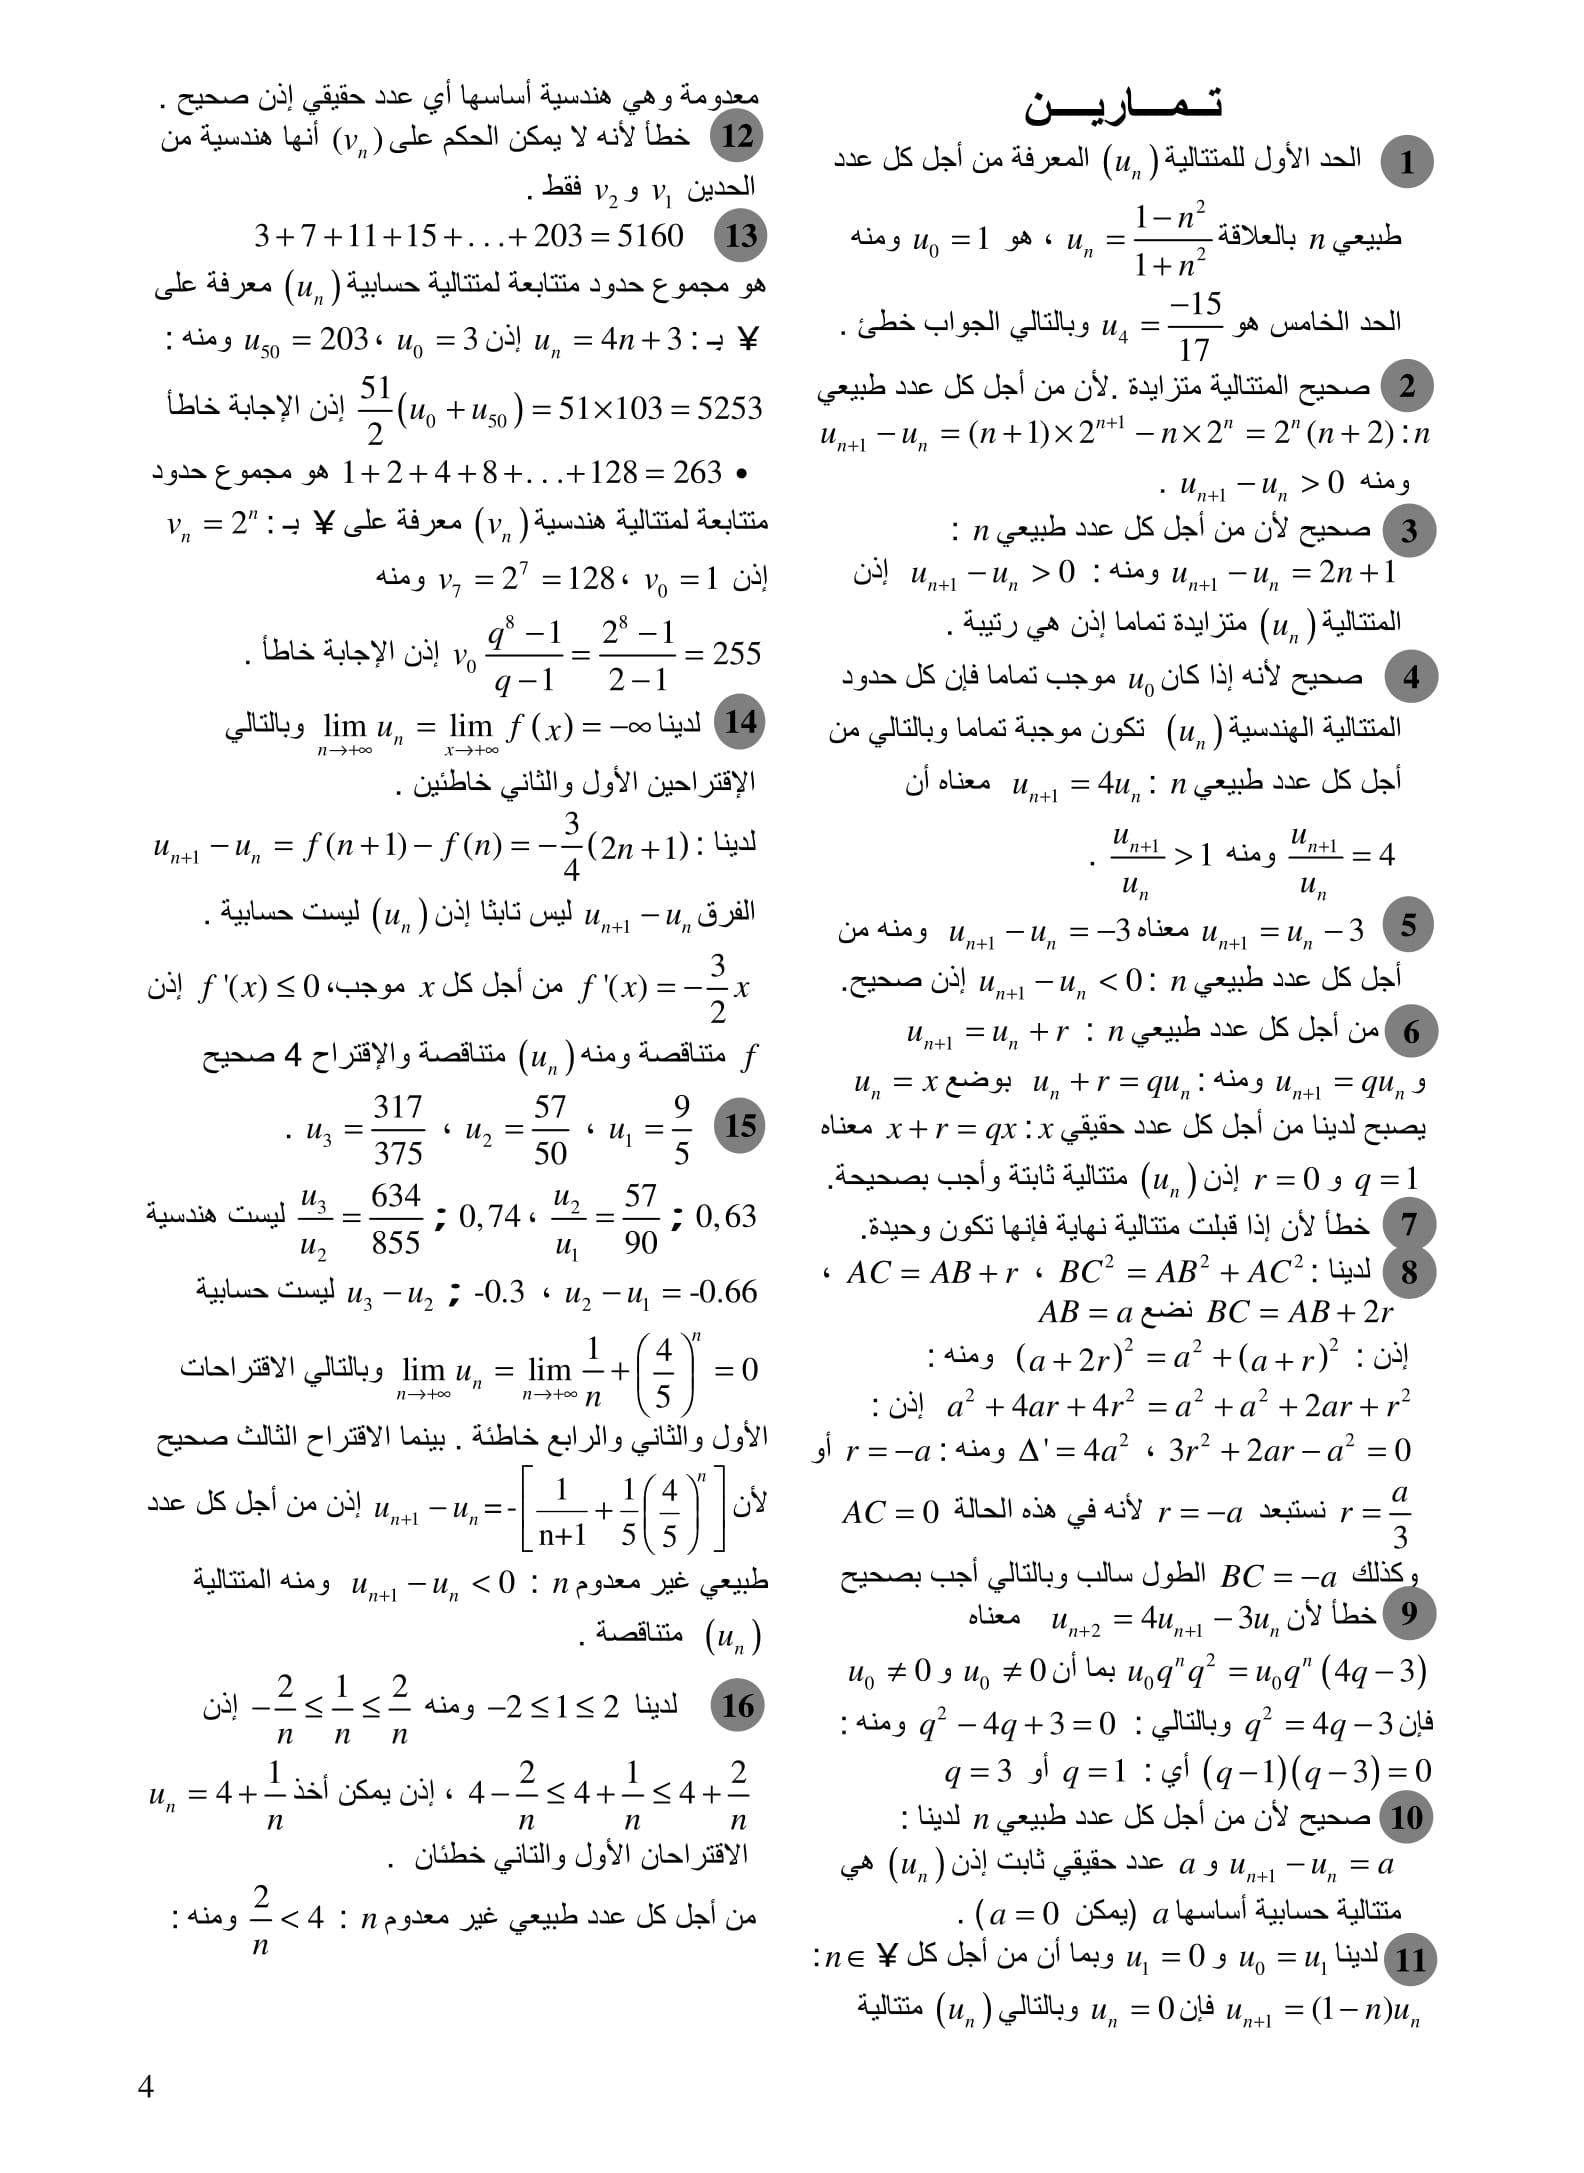 تـمـــاريـــن
1 الحد الأول للمتتالية (u_n) المعرفة من أجل كل عدد
طبيعي n بالعلاقة u_n = (1-n²)/(1+n²) ، هو u_0 = 1 ومنه
الحد الخامس هو u_4 = -15/17 وبالتالي الجواب خطئ .
2 صحيح المتتالية متزايدة .لأن من أجل كل عدد طبيعي
n: u_{n+1} - u_n = (n+1)×2^{n+1} - n×2^n = 2^n(n+2)
ومنه u_{n+1} - u_n > 0 .
3 صحيح لأن من أجل كل عدد طبيعي n :
u_{n+1} - u_n = 2n+1 ومنه : u_{n+1} - u_n > 0 إذن
المتتالية (u_n) متزايدة تماما إذن هي رتيبة .
4 صحيح لأنه إذا كان u_0 موجب تماما فإن كل حدود
المتتالية الهندسية (u_n) تكون موجبة تماما وبالتالي من
أجل كل عدد طبيعي n : u_{n+1} = 4u_n معناه أن
u_{n+1}/u_n = 4 ومنه u_{n+1}/u_n > 1 .
5 u_{n+1} = u_n - 3 معناه u_{n+1} - u_n = -3 ومنه من
أجل كل عدد طبيعي n : u_{n+1} - u_n < 0 إذن صحيح.
6 من أجل كل عدد طبيعي n : u_{n+1} = u_n + r
و u_{n+1} = qu_n ومنه : u_n + r = qu_n بوضع u_n = x
يصبح لدينا من أجل كل عدد حقيقي x : x + r = qx معناه
q = 1 و r = 0 إذن (u_n) متتالية ثابتة وأجب بصحيحة.
7 خطأ لأن إذا قبلت متتالية نهاية فإنها تكون وحيدة.
8 لدينا : BC² = AB² + AC² ، AC = AB + r ،
BC = AB + 2r نضع AB = a
إذن : (a+2r)² = a² + (a+r)² ومنه :
a² + 4ar + 4r² = a² + a² + 2ar + r² إذن :
3r² + 2ar - a² = 0 ، Δ' = 4a² ومنه : r = -a أو
r = a/3 نستبعد r = -a لأنه في هذه الحالة AC = 0
وكذلك BC = -a الطول سالب وبالتالي أجب بصحيح
9 خطأ لأن u_{n+2} = 4u_{n+1} - 3u_n معناه
u_0q^nq² = u_0q^n(4q-3) بما أن u_0 ≠ 0 و u_0 ≠ 0
فإن q² = 4q-3 وبالتالي : q² - 4q + 3 = 0 ومنه :
(q-1)(q-3) = 0 أي : q = 1 أو q = 3
10 صحيح لأن من أجل كل عدد طبيعي n لدينا :
u_{n+1} - u_n = a و a عدد حقيقي ثابت إذن (u_n) هي
متتالية حسابية أساسها a (يمكن a = 0) .
11 لدينا u_0 = u_1 و u_1 = 0 وبما أن من أجل كل n ∈ ¥ :
u_{n+1} = (1-n)u_n فإن u_n = 0 وبالتالي (u_n) متتالية
معدومة وهي هندسية أساسها أي عدد حقيقي إذن صحيح .
12 خطأ لأنه لا يمكن الحكم على (v_n) أنها هندسية من
الحدين v_1 و v_2 فقط .
13 3+7+11+15+...+203 = 5160
هو مجموع حدود متتابعة لمتتالية حسابية (u_n) معرفة على
¥ بـ : u_n = 4n+3 إذن u_0 = 3 ، u_50 = 203 ومنه :
51/2 (u_0 + u_50) = 51×103 = 5253 إذن الإجابة خاطأ
• 1+2+4+8+...+128 = 263 هو مجموع حدود
متتابعة لمتتالية هندسية (v_n) معرفة على ¥ بـ : v_n = 2^n
إذن v_0 = 1 ، v_7 = 2^7 = 128 ومنه
v_0 (q^8-1)/(q-1) = (2^8-1)/(2-1) = 255 إذن الإجابة خاطأ .
14 لدينا lim_{n→+∞} u_n = lim_{x→+∞} f(x) = -∞ وبالتالي
الإقتراحين الأول والثاني خاطئين .
لدينا : u_{n+1} - u_n = f(n+1) - f(n) = -3/4 (2n+1)
الفرق u_{n+1} - u_n ليس تابثا إذن (u_n) ليست حسابية .
f'(x) = -3/2 x من أجل كل x موجب، f'(x) ≤ 0 إذن
f متناقصة ومنه (u_n) متناقصة والإقتراح 4 صحيح
15 u_1 = 9/5 ، u_2 = 57/50 ، u_3 = 317/375 .
u_2/u_1 = 57/90 ; 0,63 ، u_3/u_2 = 634/855 ; 0,74 ليست هندسية
u_2 - u_1 = -0.66 ، u_3 - u_2 ; -0.3 ليست حسابية
lim_{n→+∞} u_n = lim_{n→+∞} 1/n + (4/5)^n = 0 وبالتالي الاقتراحات
الأول والثاني والرابع خاطئة . بينما الاقتراح الثالث صحيح
لأن u_{n+1} - u_n = -[1/(n+1) + 1/5 (4/5)^n] إذن من أجل كل عدد
طبيعي غير معدوم n : u_{n+1} - u_n < 0 ومنه المتتالية
(u_n) متناقصة .
16 لدينا -2 ≤ 1 ≤ 2 ومنه -2/n ≤ 1/n ≤ 2/n إذن
4 - 2/n ≤ 4 + 1/n ≤ 4 + 2/n ، إذن يمكن أخذ u_n = 4 + 1/n
الاقتراحان الأول والتاني خطئان .
من أجل كل عدد طبيعي غير معدوم n : 2/n < 4 ومنه :
4